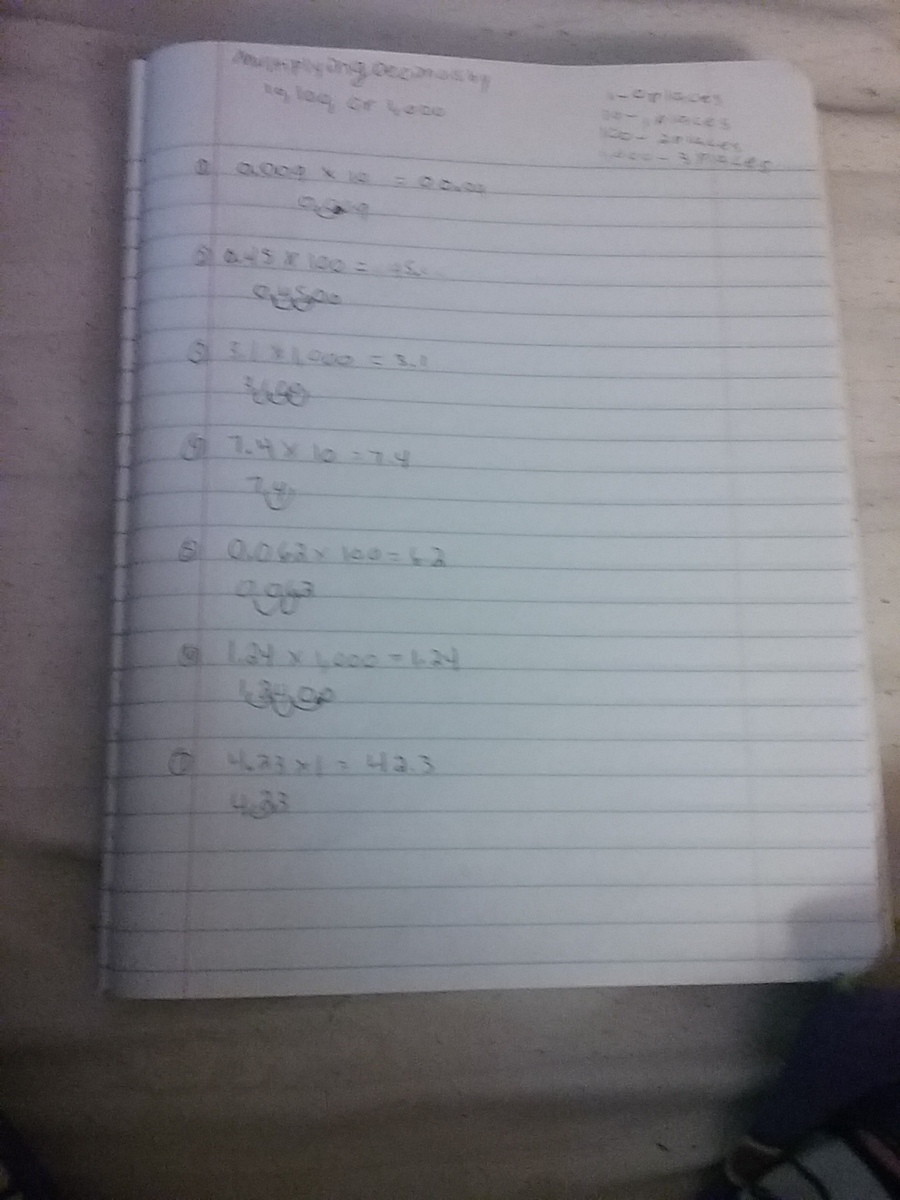 Multiplying Decimals by
10, 100, or 1,000
1-0 places
10-1 places
100-2 places
1,000-3 places
① 0.009 × 10 = 00.09
② 0.45 × 100 = 45.
0.4500
③ 3.1 × 1,000 = 3.1
④ 7.4 × 10 = 7.4
7.4
⑤ 0.062 × 100 = 6.2
0.062
⑥ 1.24 × 1,000 = 1.24
⑦ 4.23 × 1 = 42.3
4.23